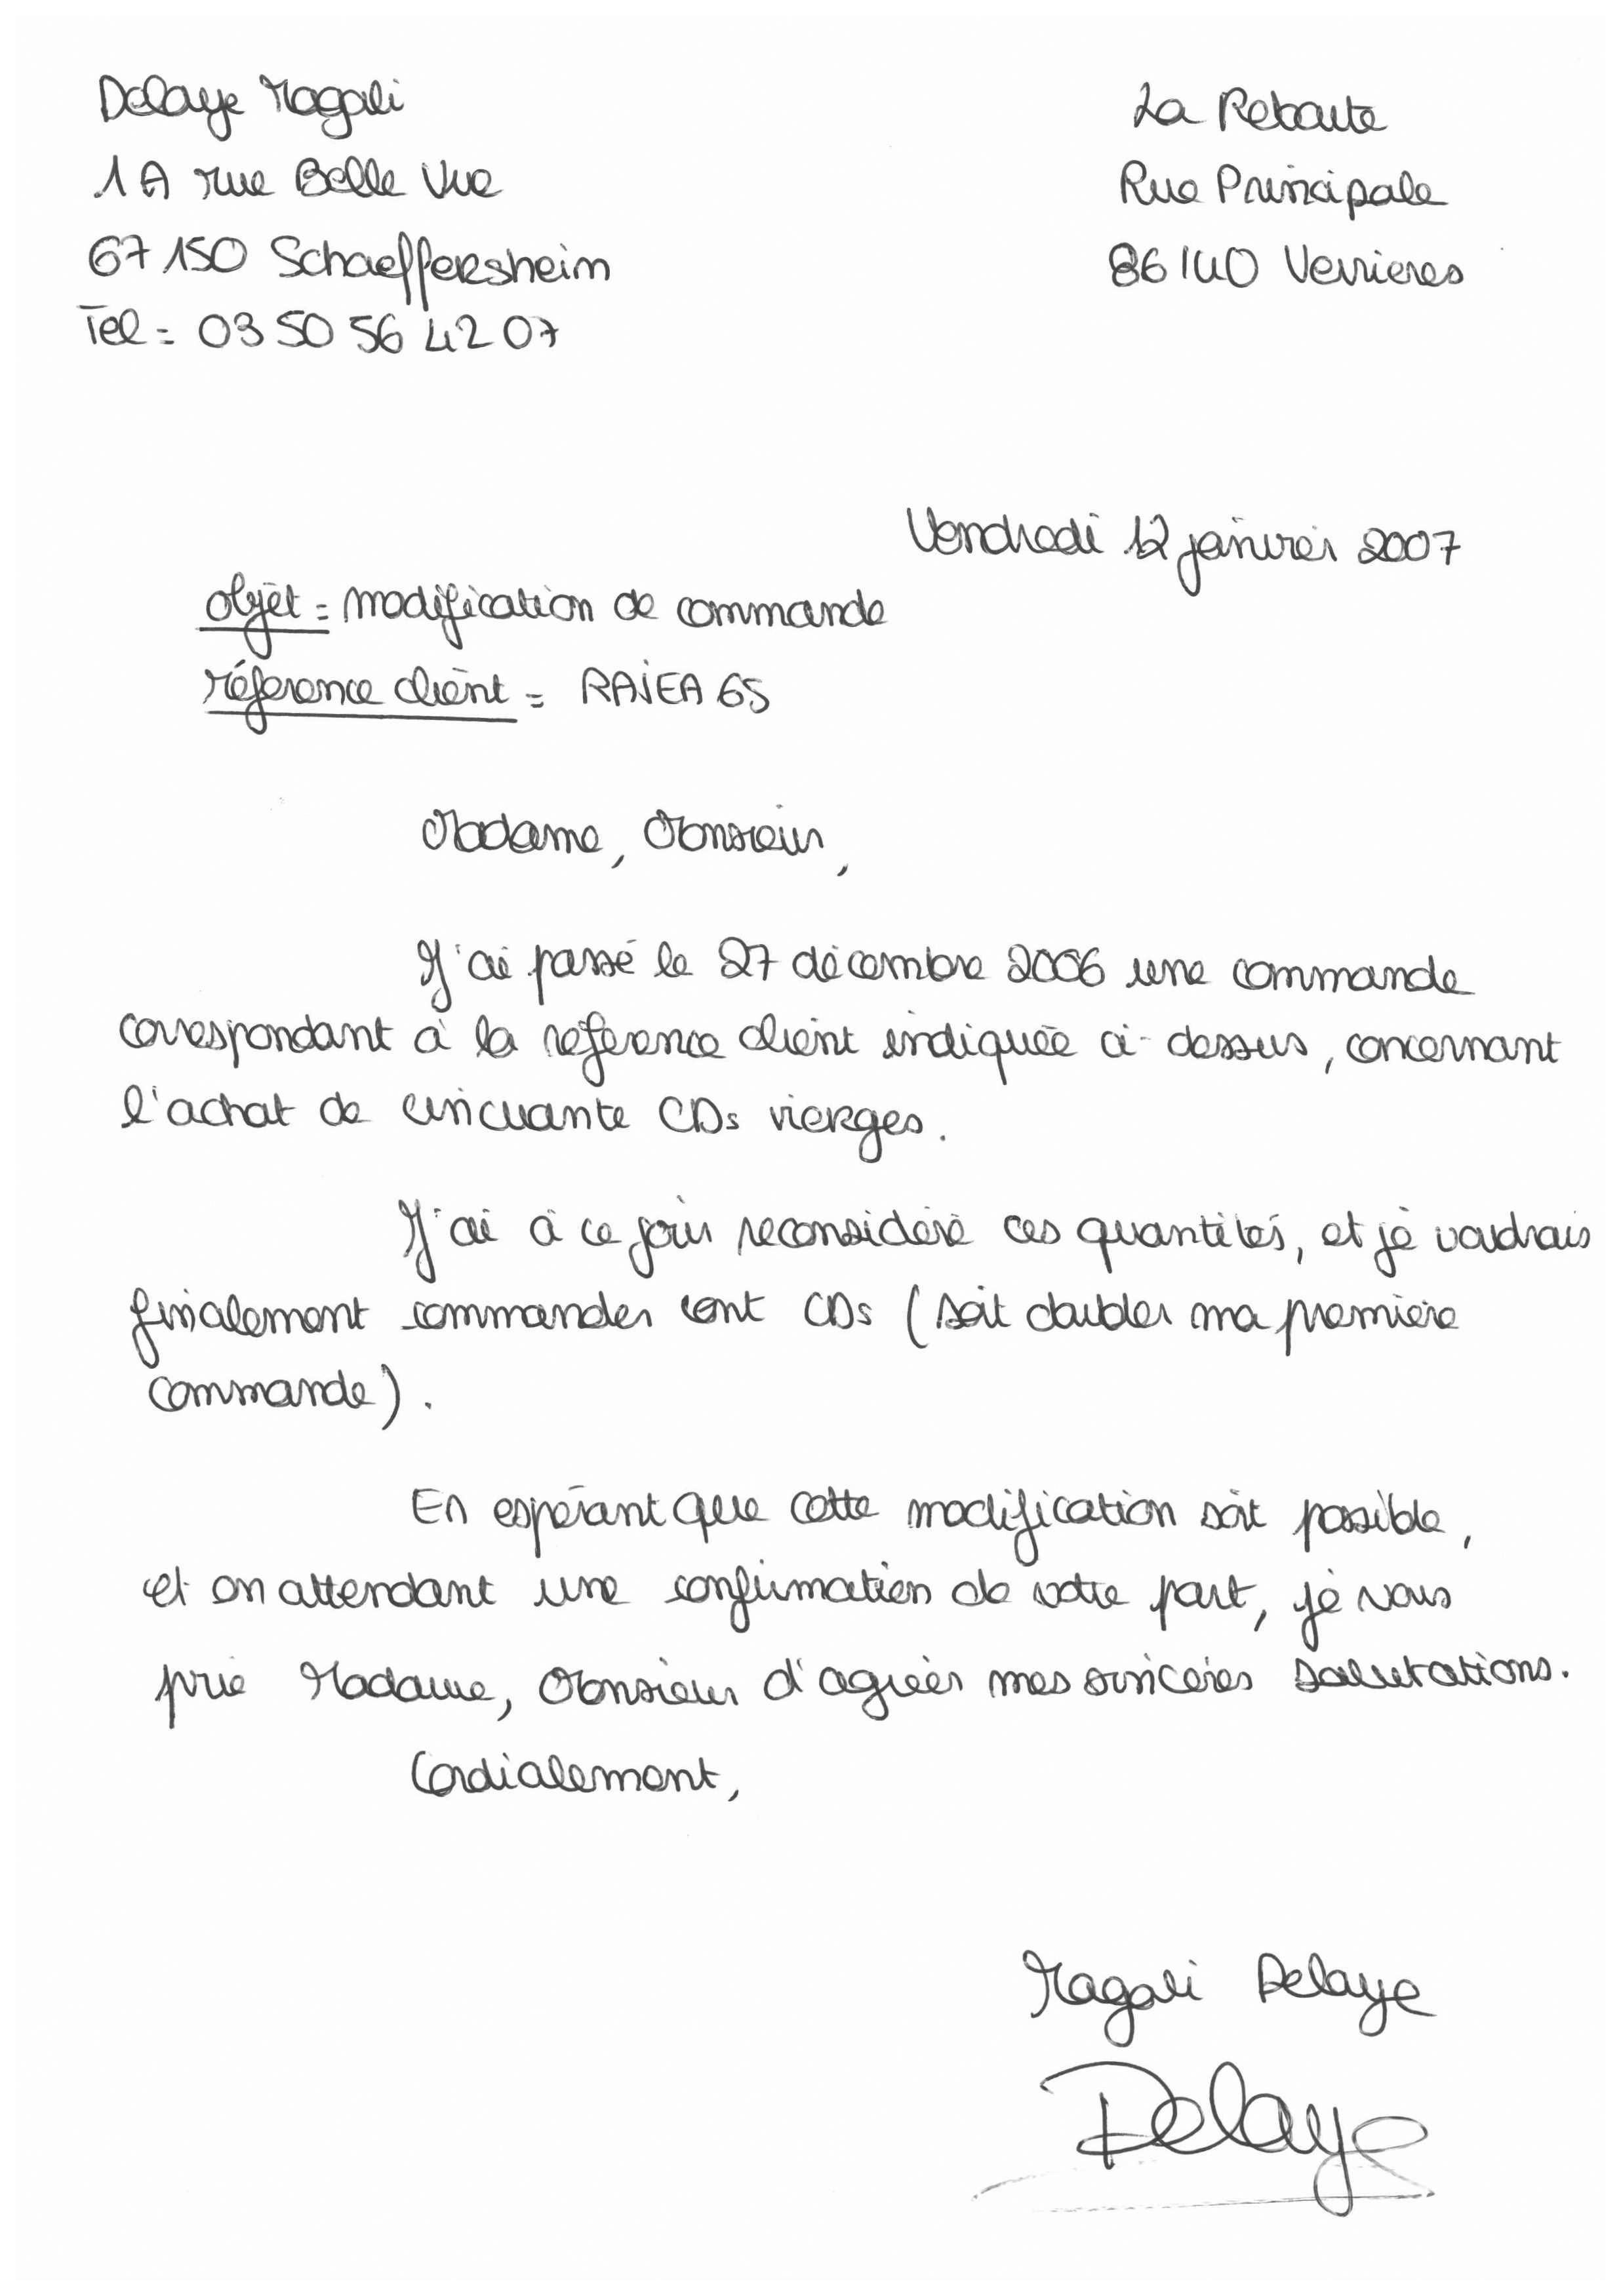 Delaye Magali
1A rue Belle Vue
67150 Schaeffersheim
Tel = 03 50 56 42 07
La Reboute
Rue Principale
86140 Verrieres
Vendredi 12 janvier 2007
objet = modification de commande
référence client = RAJEA65
Madame, Monsieur,
J'ai passé le 27 décembre 2006 une commande
correspondant à la référence client indiquée ci-dessus, concernant
l'achat de cincuante CDs vierges.
J'ai à ce jour reconsidéré ces quantités, et je voudrais
finalement commander cent CDs (soit doubler ma première
commande).
En espérant que cette modification soit possible,
et en attendant une confirmation de votre part, je vous
prie Madame, Monsieur d'agréer mes sincères salutations.
Cordialement,
Magali Delaye
Delaye